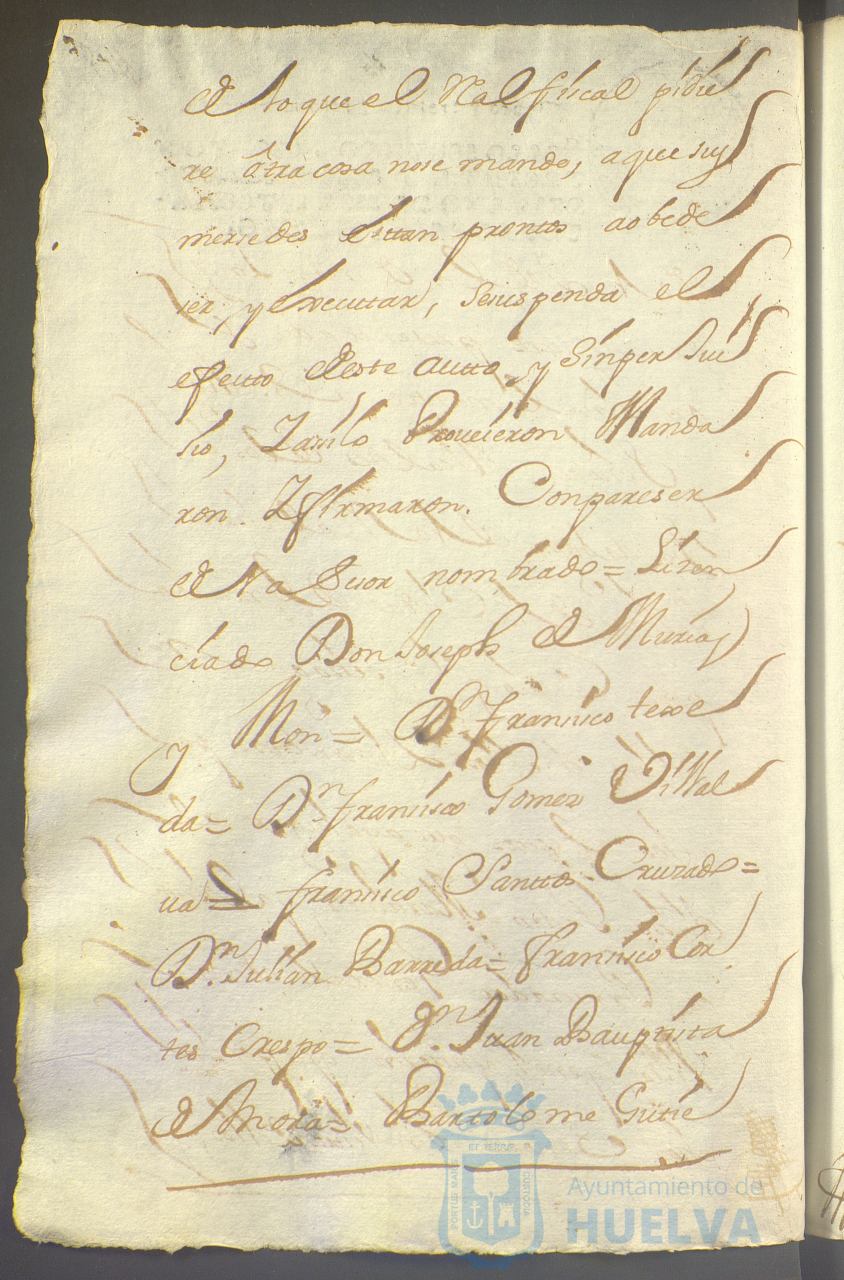 de lo que el Real fiscal pidie
re ôtra cosa nose mande, a que sus
mersedes Estan prontos aobede
ser, y Executtar, Sesuspenda el
efecto deeste autto, y Sinper Jui
sio, Yasilo Proveieron Manda
ron Yfirmaron. Conpareser
del Asesor nombrado = Lizen
ciado Don Joseph de Murias
y Mon = Dn. Francisco texe
da = Dn. Francisco Gomez de Villal
va = francisco Santtos Cruzado =
Dn. Julian Barreda = Francisco Cor
tes Crespo = Dn. Juan Bauptista
de Mora = Bartolome Gutie
PORTUS MARIS
ET TERRAE
CUSTODIA
Ayuntamiento de
HUELVA